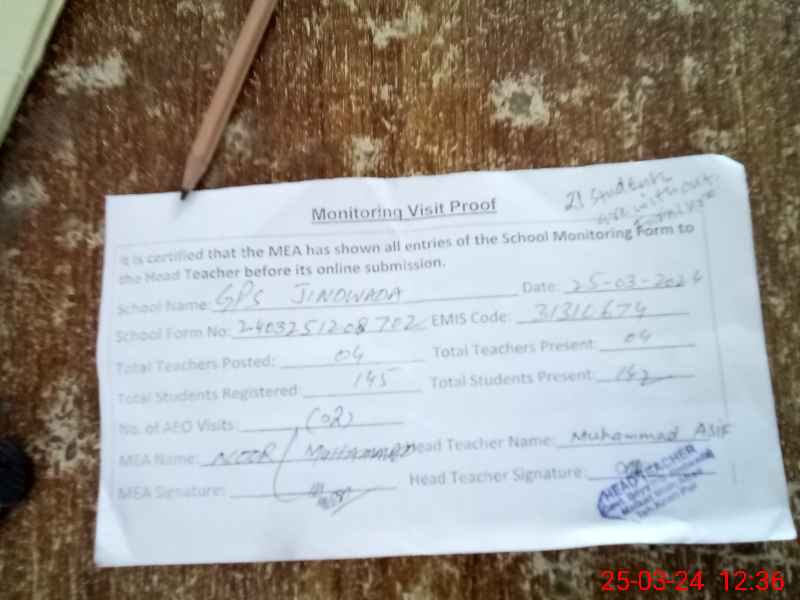 21 students
are without
Monitoring Visit Proof
It is certified that the MEA has shown all entries of the School Monitoring Form to
the Head Teacher before its online submission.
School Name: GPS JINDWADA Date: 25-03-2024
School Form No: 2403251208702 EMIS Code: 31310674
Total Teachers Posted: 04 Total Teachers Present: 04
Total Students Registered: 145 Total Students Present: 142
No. of AEO Visits: (02)
MEA Name: NOOR Muhammad Head Teacher Name: Muhammad ASIF
MEA Signature: Head Teacher Signature:
HEAD TEACHER
25-03-24 12:36